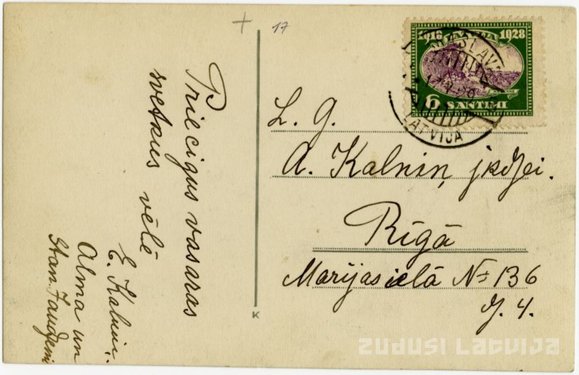 + 17
Priecigus vasaras
svetkus vēlē
E. Kalniņ,
Alma un
1918 1928
6 SANTIMI
LATVIJA
L. G.
A. Kalniņ jkdzei.
Rīgā
Marijas ielā № 136
dz. 4.
K
ZUDUSI LATVIJA